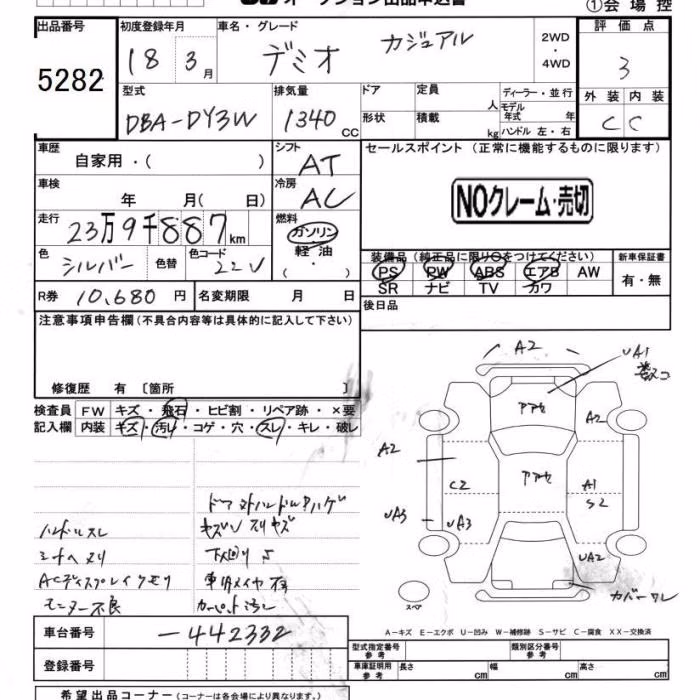 オークション出品申込書
①会場控
出品番号 初度登録年月 車名・グレード 評価点
5282
18 3月 デミオ カジュアル 2WD・4WD 3
型式 排気量 ドア 定員 人 ディーラー・並行 外装 内装
DBA-DY3W 1340cc 形状 積載 kg モデル年式 年 ハンドル 左・右 C C
車歴 自家用・( ) シフト AT セールスポイント (正常に機能するものに限ります)
車検 年 月( 日) 冷房 AC
NOクレーム・売切
走行 23万9千887km 燃料 ガソリン 軽油 ( ・ )
装備品 (純正品に限り○をつけてください) 新車保証書
色 シルバー 色替 色コード 22V
PS PW ABS エアB AW 有・無
SR ナビ TV カワ
R券 10,680円 名変期限 月 日
後日品
注意事項申告欄 (不具合内容等は具体的に記入して下さい)
修復歴 有 〔箇所 〕
検査員 FW キズ・飛石・ヒビ割・リペア跡・×要
記入欄 内装 キズ・汚レ・コゲ・穴・スレ・キレ・破レ
A2
UA1
アアセ
A2
A2
アアセ
C2
A1
S2
UA3
UA3
UA2
カバーワレ
スペア
ハンドルスレ
シートヘタリ
ACディスプレイクモリ
モニター不良
下回りサ
A-キズ E-エクボ U-凹み W-補修跡 S-サビ C-腐食 XX-交換済
車台番号 -442332
登録番号
型式指定番号 参考 類別区分番号 参考
車庫証明用 参考 長さ cm 幅 cm 高さ cm
希望出品コーナー (コーナーは各会場により異なります。)